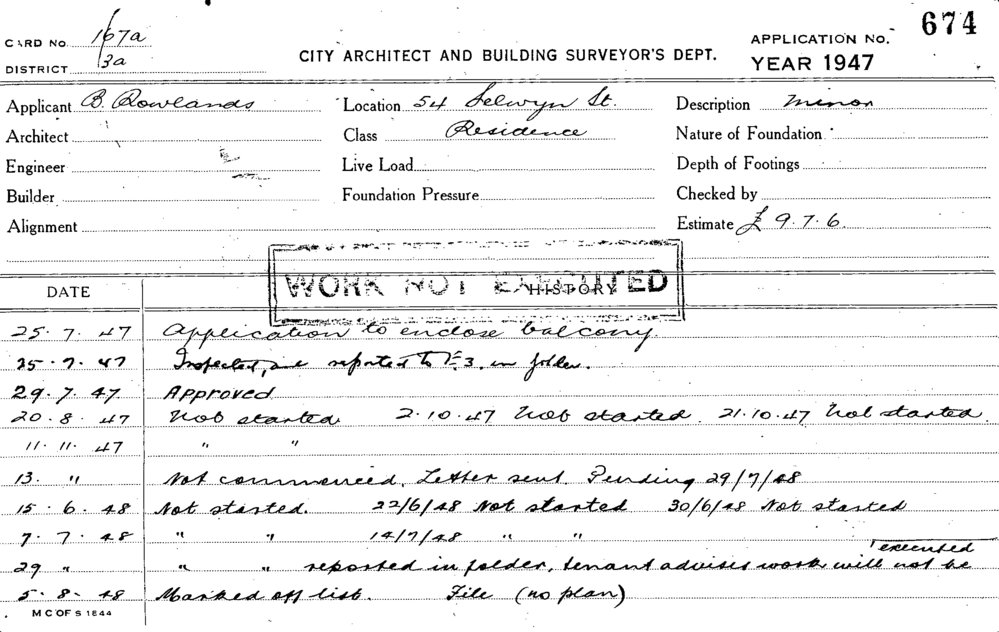 CARD NO. 167a
DISTRICT 3a
CITY ARCHITECT AND BUILDING SURVEYOR'S DEPT.
APPLICATION NO. 674
YEAR 1947
Applicant B. Rowlands Location 54 Selwyn St. Description minor
Architect Class Residence Nature of Foundation
Engineer Live Load Depth of Footings
Builder Foundation Pressure Checked by
Alignment Estimate £ 9.7.6
WORK NOT EXECUTED
DATE HISTORY
25.7.47 Application to enclose balcony.
25.7.47 Inspected, and reported to in folder.
29.7.47 Approved
20.8.47 Not started 2.10.47 Not started. 21.10.47 Not started
11.11.47 " "
13. " Not commenced, Letter sent. Pending 29/7/48
15.6.48 Not started. 22/6/48 Not started 30/6/48 Not started
7.7.48 " " 14/7/48 " "
29 " " " reported in folder, tenant advises work will not be executed
5.8.48 Marked off list. File (no plan)
M C OF S 1844